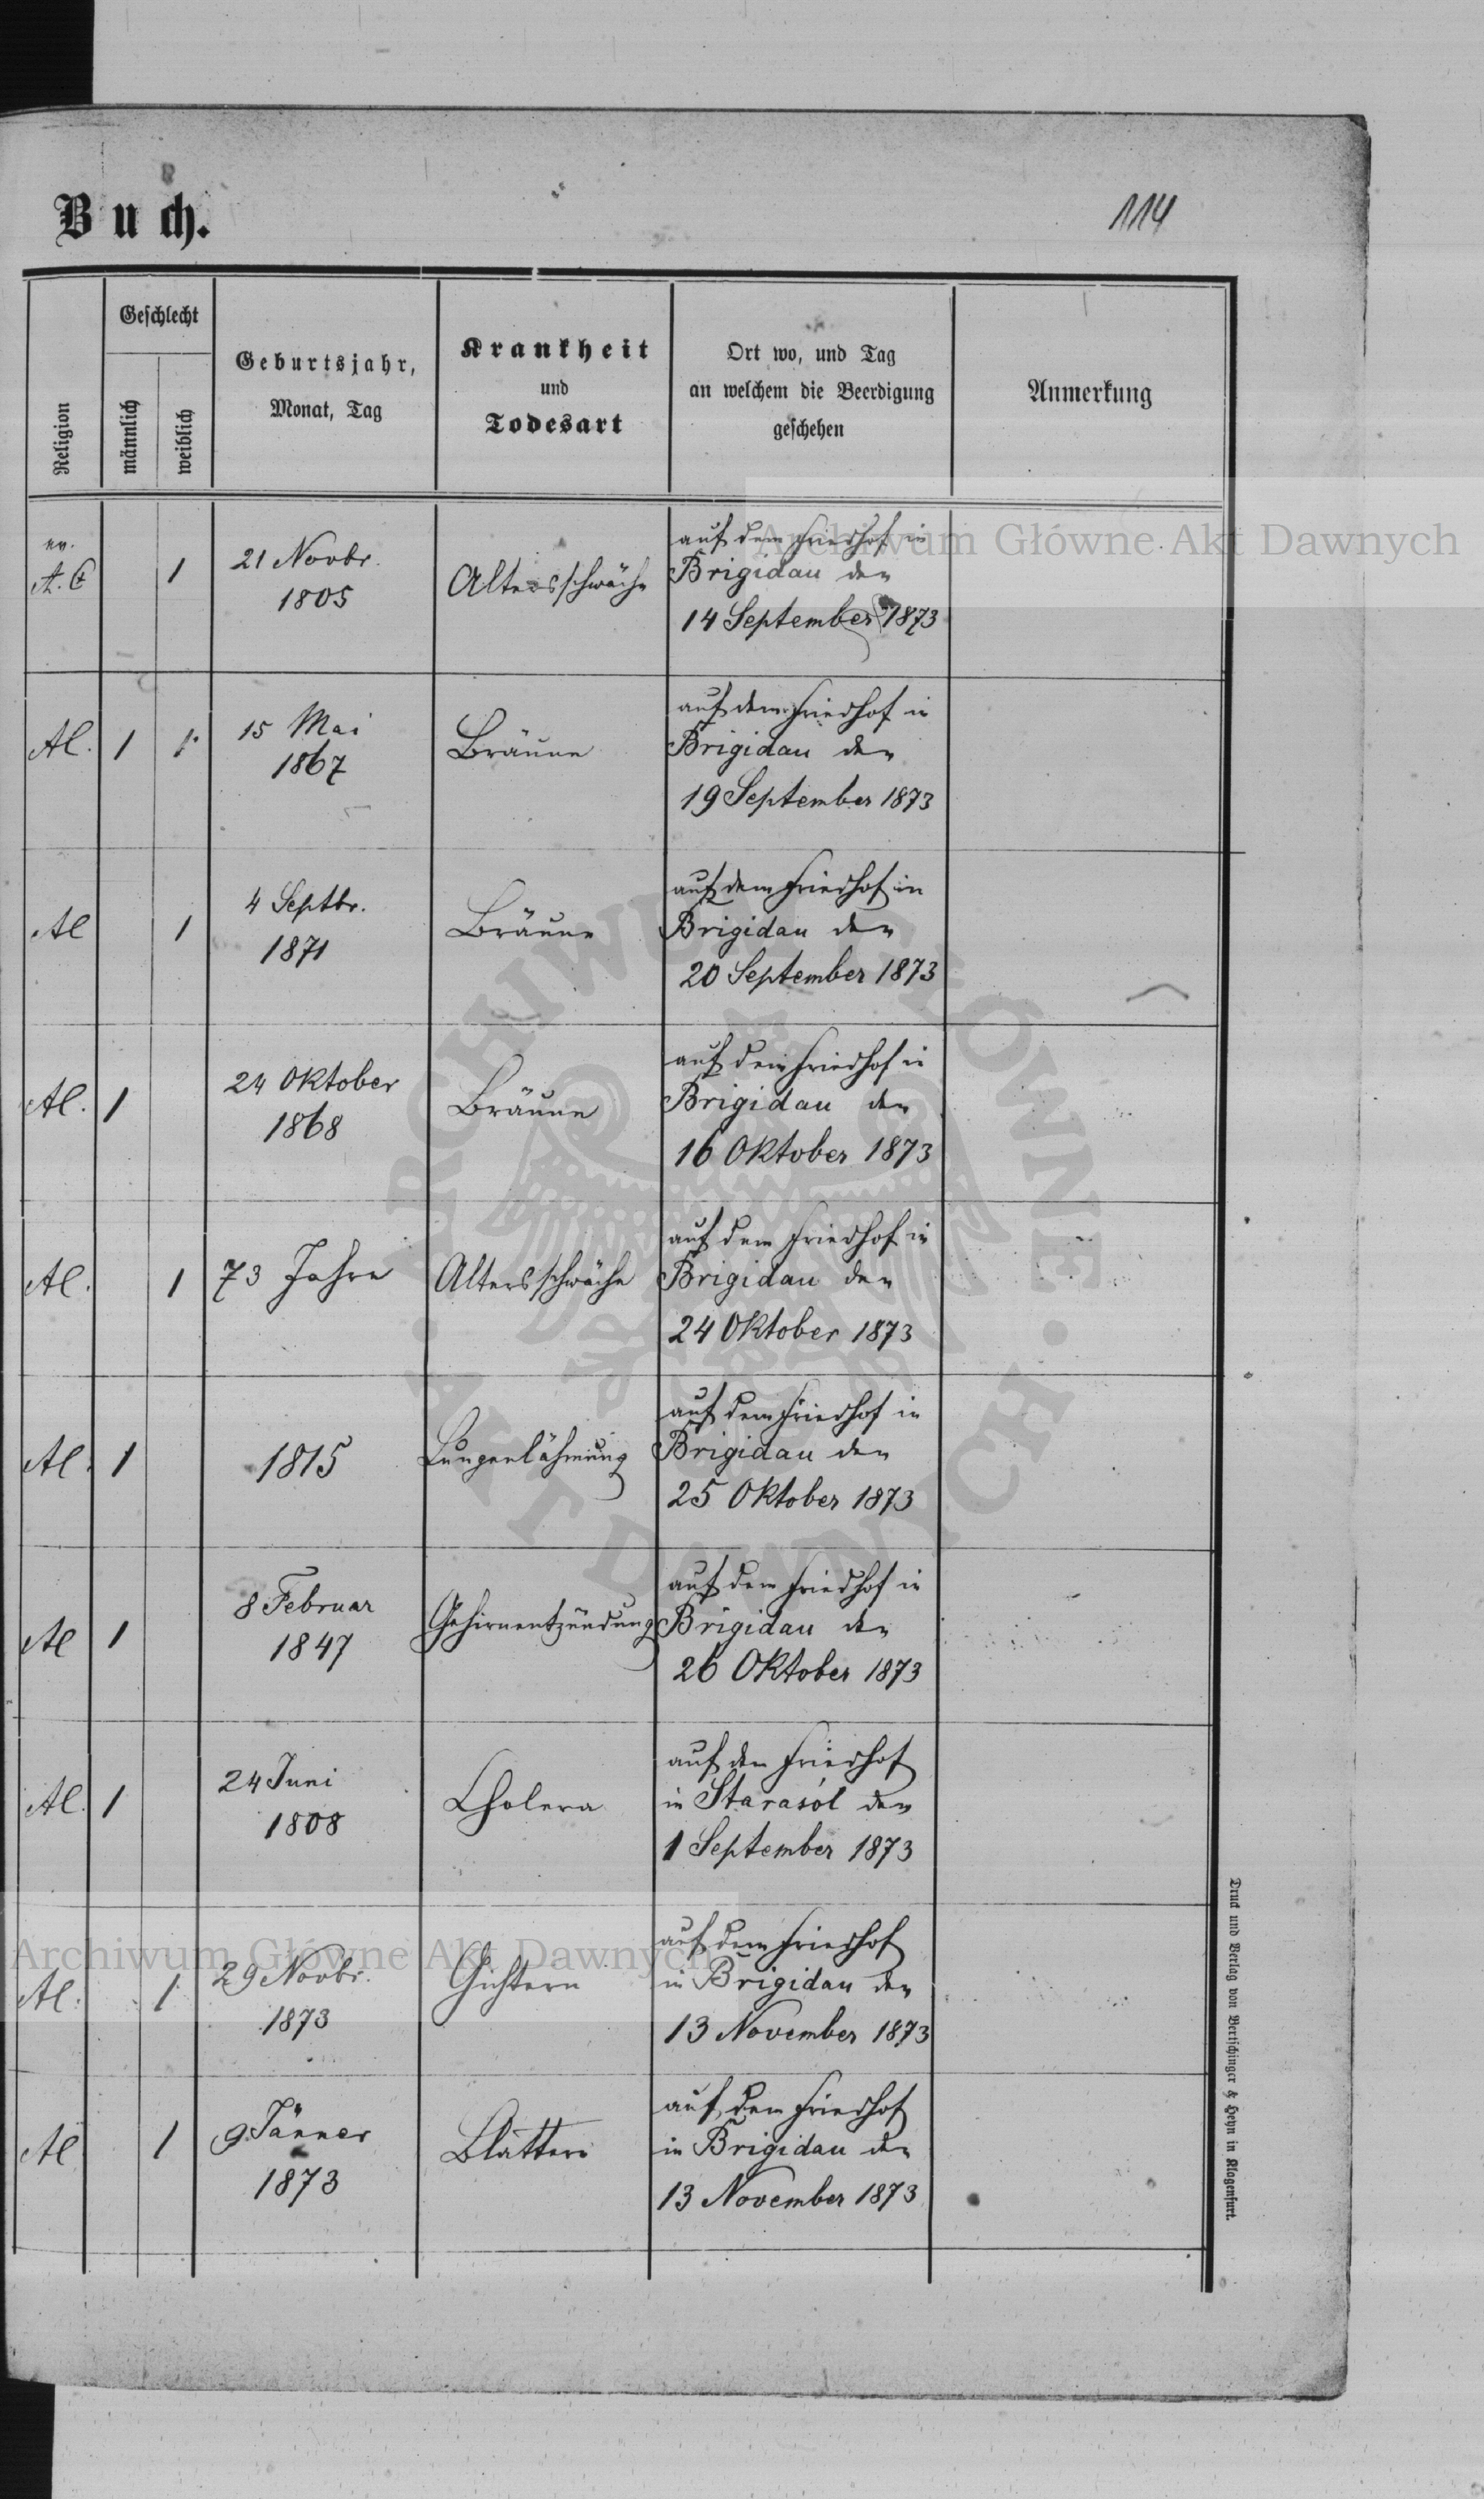 Buch.
114
Religion
Geschlecht
männlich
weiblich
Geburtsjahr,
Monat, Tag
Krankheit
und
Todesart
Ort wo, und Tag
an welchem die Beerdigung
geschehen
Anmerkung
ev.
A. C
1
21 Novbr.
1805
Altersschwäche
auf dem Friedhof in
Brigidau den
14 September 1873
Al.
1
1.
15 Mai
1867
Bräune
auf dem Friedhof in
Brigidau den
19 September 1873
Al
1
4 Septbr.
1871
Bräune
auf dem Friedhof in
Brigidau den
20 September 1873
Al.
1
24 Oktober
1868
Bräune
auf dem Friedhof in
Brigidau den
16 Oktober 1873
Al.
1
73 Jahre
Altersschwäche
auf dem Friedhof in
Brigidau den
24 Oktober 1873
Al.
1
1815
Lungenlähmung
auf dem Friedhof in
Brigidau den
25 Oktober 1873
Al
1
8 Februar
1847
Gehirnentzündung
auf dem Friedhof in
Brigidau den
26 Oktober 1873
Al.
1
24 Juni
1808
Cholera
auf den Friedhof
in Starasól den
1 September 1873
Al.
1
29 Novbr.
1873
Gichtern
auf dem Friedhof
in Brigidau den
13 November 1873
Al
1
9 Jänner
1873
Blattern
auf dem Friedhof
in Brigidau den
13 November 1873
Druck und Verlag von Bertschinger & Heyn in Klagenfurt.
Archiwum Główne Akt Dawnych
Archiwum Główne Akt Dawnych
ARCHIWUM GŁÓWNE · AKT DAWNYCH ·